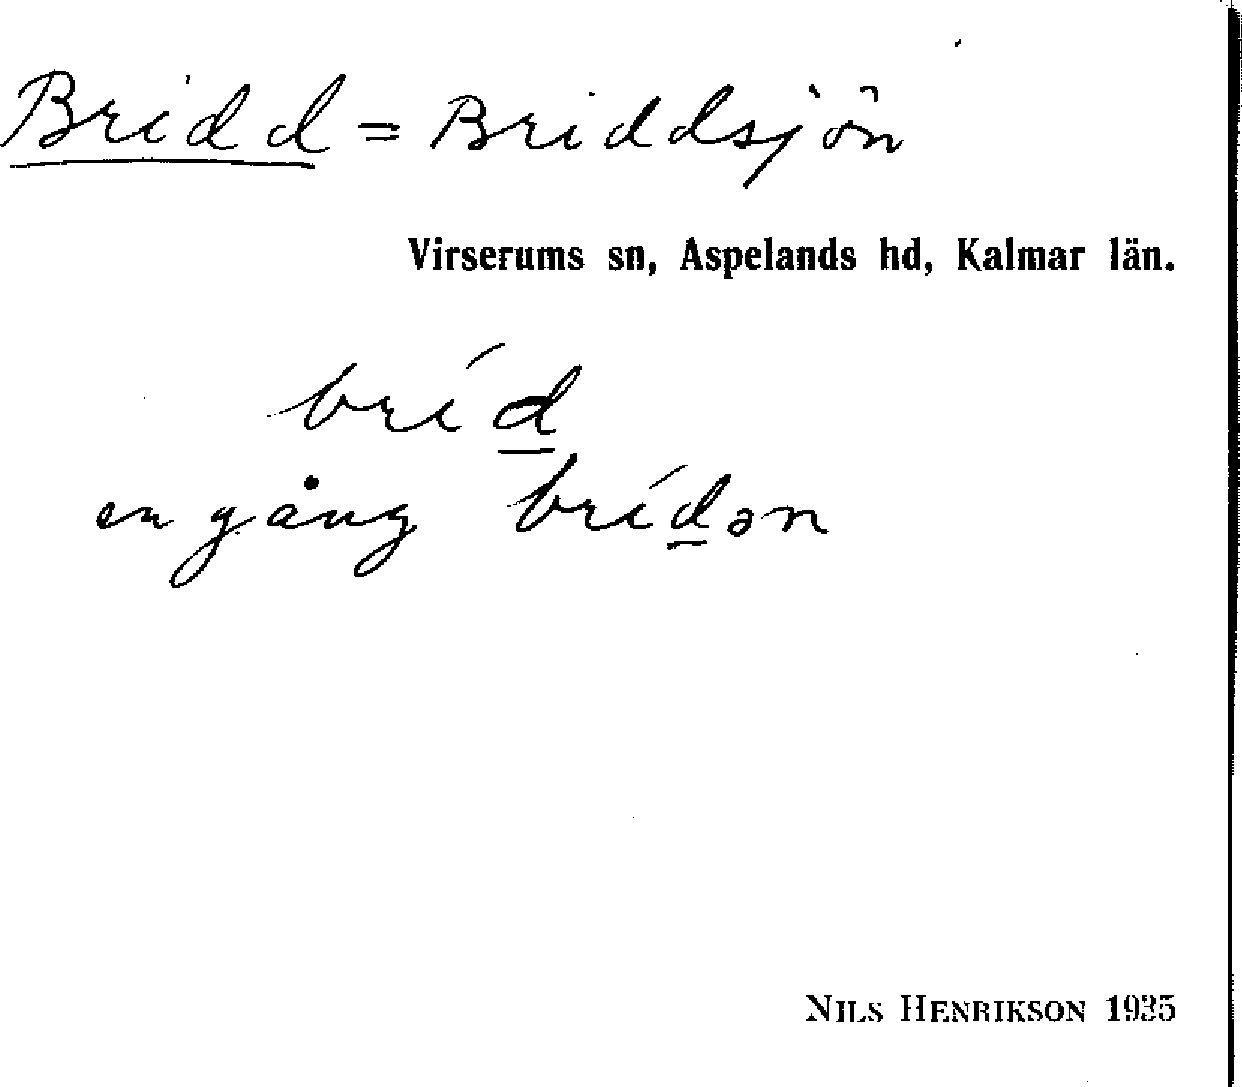 Bridd = Briddsjön
Virserums sn, Aspelands hd, Kalmar län.
bríd
en gång brídən
NILS HENRIKSON 1935